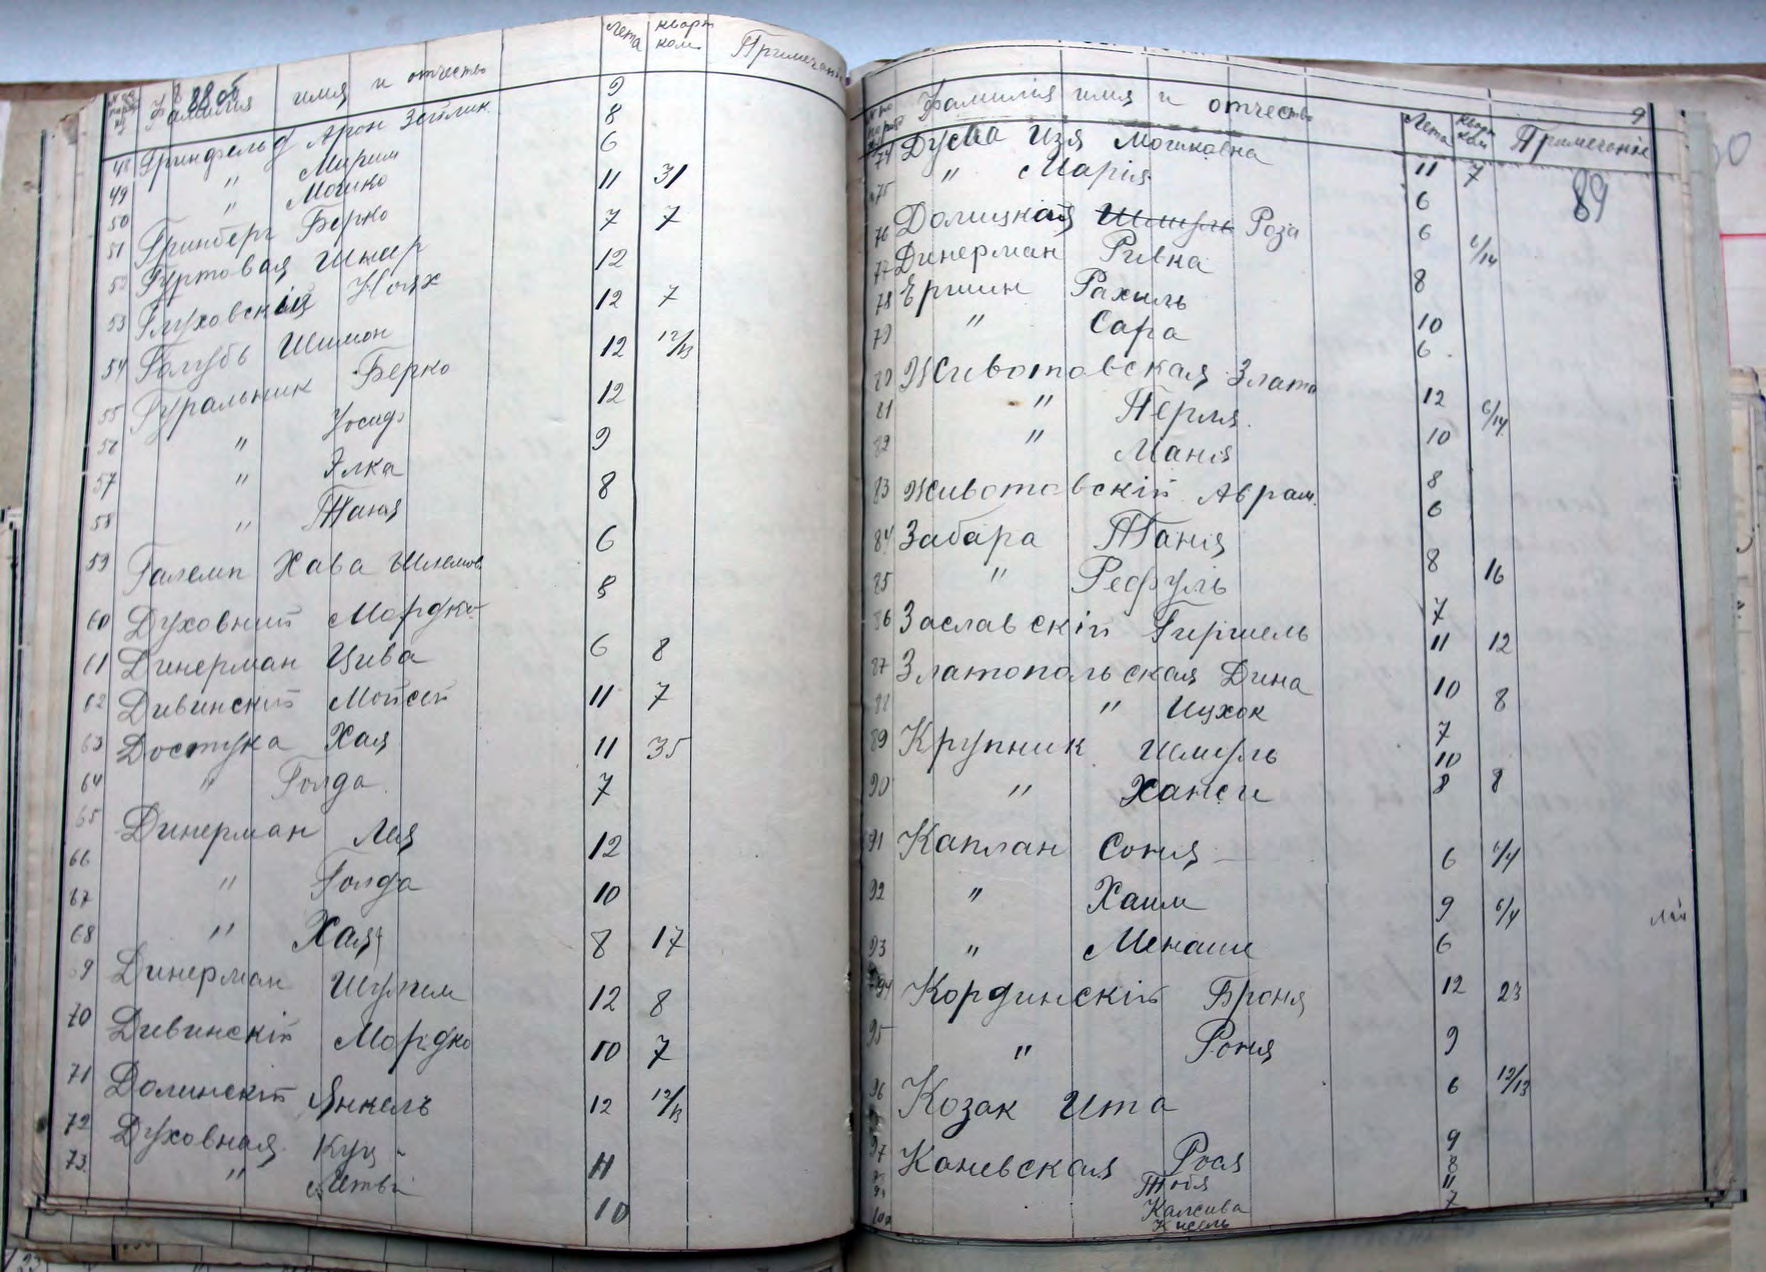 88 об
№ по поряд Фамилія имя и отчество Лета кварт ком. Примечаніе
48 Гринфельд Арон Зейлик 9
49 " Мирим 8
50 " Мошко 6
51 Гринберг Берко 11 31
52 Гуртовая Шнеер 7 7
53 Глуховскій Ноях 12
54 Голубь Шимон 12 7
55 Гуральник Берко 12 12/13
56 " Иосиф 12
57 " Элка 9
58 " Таня 8
59 Галемп Хава Шлемов 6
60 Духовний Мордко 8
61 Динерман Цива 6 8
62 Дивинскій Мойсей 11 7
63 Достука Хая 11 35
64 " Голда 7
65 Динерман Лея 12
66 " Голда 10
67
68 " Хая 8 17
69 Динерман Шулим 12 8
70 Дивинскій Мордко 10 7
71 Долинскій Янкель 12 12/13
72 Духовная Куц 11
73 " 10
Фамилія имя и отчество Лета кварт ком Примечаніе
9
89
74 Дусма Изя Мошковна 11 7
75 " Марія 6
76 Долицкая Шмуль Роза 6
77 Динерман Ривна 6/14
78 Ершин Рахиль 8
79 " Сара 10
80 Животовская Злата 6
81 " Перля 12 6/14
82 " Манія 10
83 Животовскій Аврам 8
84 Забара Танія 6
85 " Рефуль 8 16
86 Заславскій Гиршель 7
87 Златопольская Дина 11 12
88 " Ицхок 10 8
89 Крупник Шмуль 7
10
90 " Ханси 8 8
91 Каплан Соня 6 6/4
92 " Хаим 9 6/4
93 " Менаше 6
94 Кординскій Броня 12 23
95 " Роня 9
96 Козак Ита 6 12/13
97 Каневская Рося 9
Тобя 8
11
100 Кисель 7